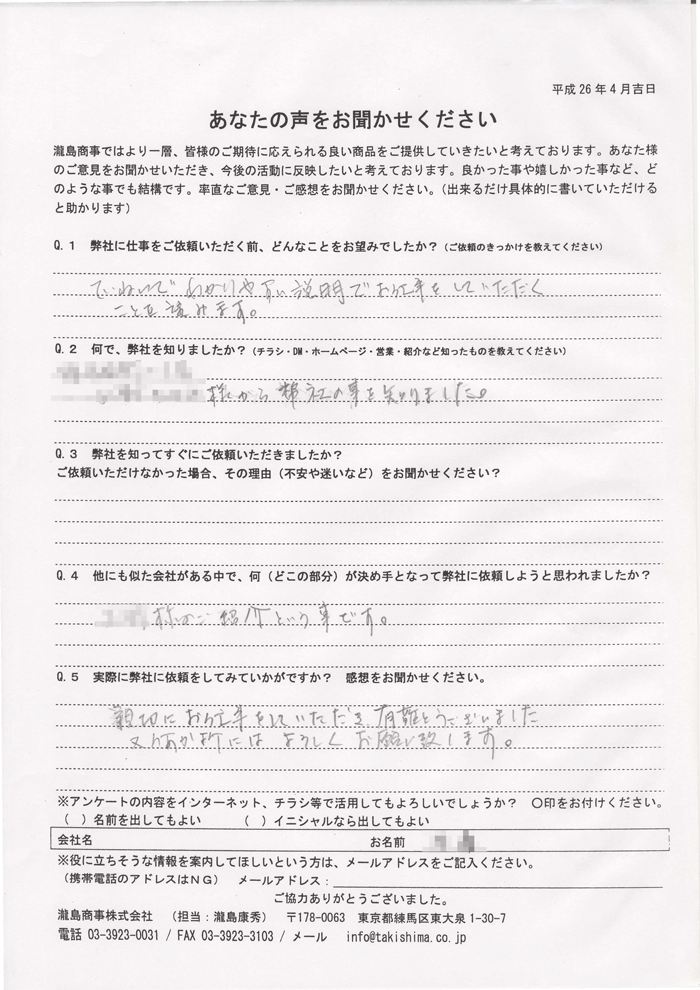 平成26年4月吉日
あなたの声をお聞かせください
瀧島商事ではより一層、皆様のご期待に応えられる良い商品をご提供していきたいと考えております。あなた様
のご意見をお聞かせいただき、今後の活動に反映したいと考えております。良かった事や嬉しかった事など、ど
のような事でも結構です。率直なご意見・ご感想をお聞かせください。（出来るだけ具体的に書いていただける
と助かります）
Q.1 弊社に仕事をご依頼いただく前、どんなことをお望みでしたか？（ご依頼のきっかけを教えてください）
ていねいで わかりやすい説明でお仕事をしていただく
ことを望みます。
Q.2 何で、弊社を知りましたか？（チラシ・DM・ホームページ・営業・紹介など知ったものを教えてください）
様から弊社の事を知りました。
Q.3 弊社を知ってすぐにご依頼いただきましたか？
ご依頼いただけなかった場合、その理由（不安や迷いなど）をお聞かせください？
Q.4 他にも似た会社がある中で、何（どこの部分）が決め手となって弊社に依頼しようと思われましたか？
様のご紹介という事です。
Q.5 実際に弊社に依頼をしてみていかがですか？ 感想をお聞かせください。
親切にお仕事をしていただき有難とうございました
又何か折には よろしくお願い致します。
※アンケートの内容をインターネット、チラシ等で活用してもよろしいでしょうか？ ○印をお付けください。
（ ）名前を出してもよい （ ）イニシャルなら出してもよい
会社名 お名前
※役に立ちそうな情報を案内してほしいという方は、メールアドレスをご記入ください。
（携帯電話のアドレスはNG） メールアドレス：
ご協力ありがとうございました。
瀧島商事株式会社 （担当：瀧島康秀） 〒178-0063 東京都練馬区東大泉1-30-7
電話 03-3923-0031 / FAX 03-3923-3103 / メール info@takishima.co.jp